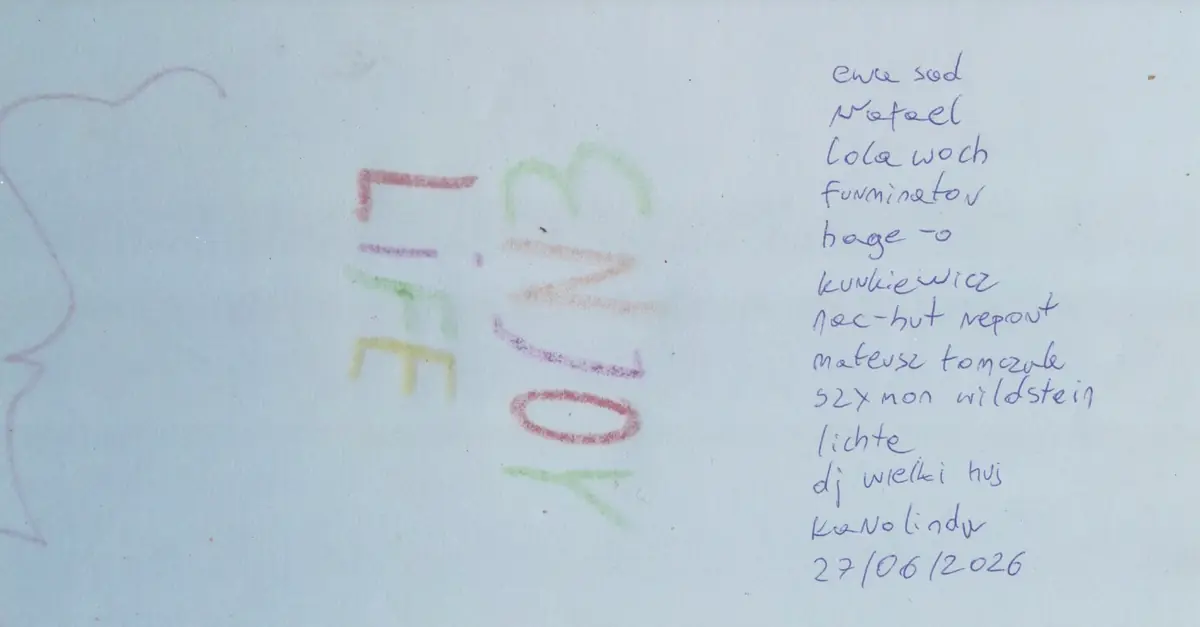 ENJOY
LiFE
ewa sad
Rafael
lola woch
furminator
hage-o
kurkiewicz
nac-hut report
mateusz tomczak
szymon wildstein
lichte
dj wielki huj
karolinda
27/06/2026